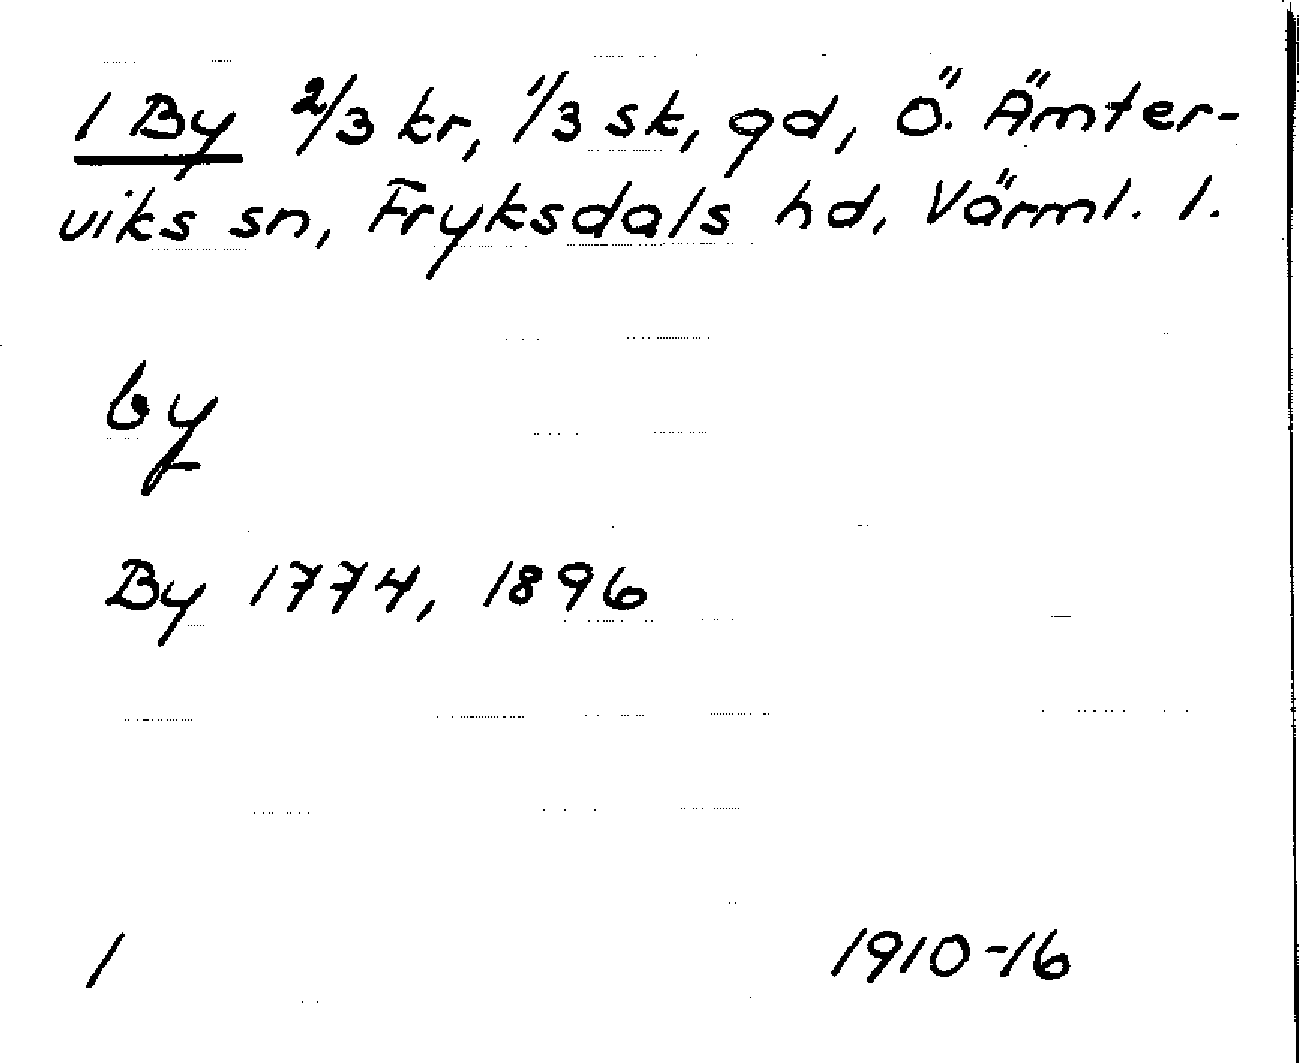 1 By 2/3 kr, 1/3 sk, gd, Ö. Ämter-
viks sn, Fryksdals hd, Värml. l.
by
By 1774, 1896
1 1910-16